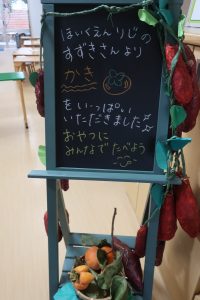 ほいくえんりじの
すずきさんより
かき
をいっぱい
いただきました
おやつに
みんなでたべよう